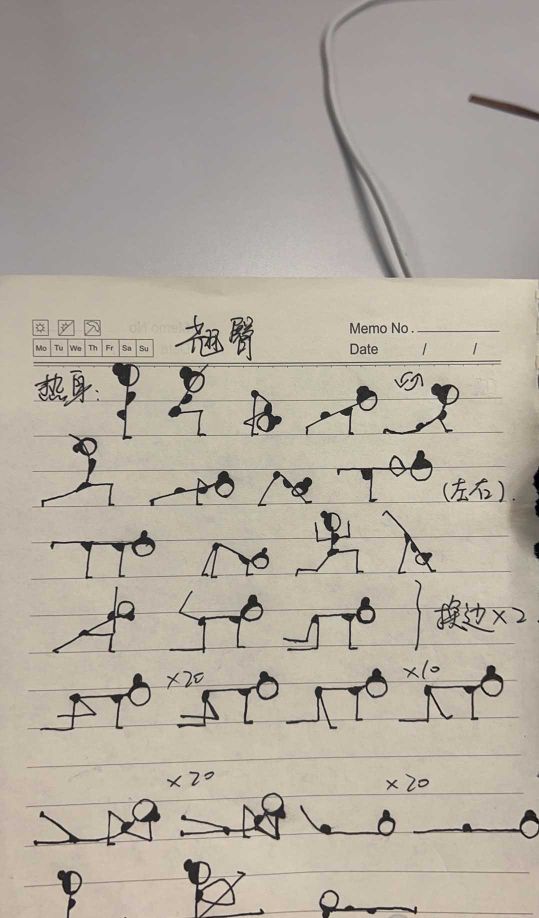 翘臀
Memo No.
Mo Tu We Th Fr Sa Su
Date / /
热身:
(左右).
换边×2.
×20 ×10
×20 ×20